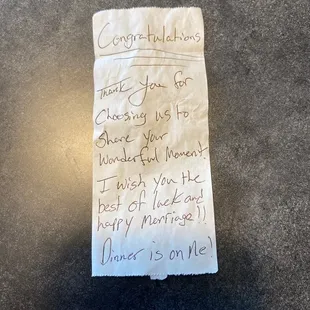 Congratulations
Thank you for
Choosing us to
Share your
Wonderful Moment!
I wish you the
best of luck and
happy Marriage!!
Dinner is on Me!